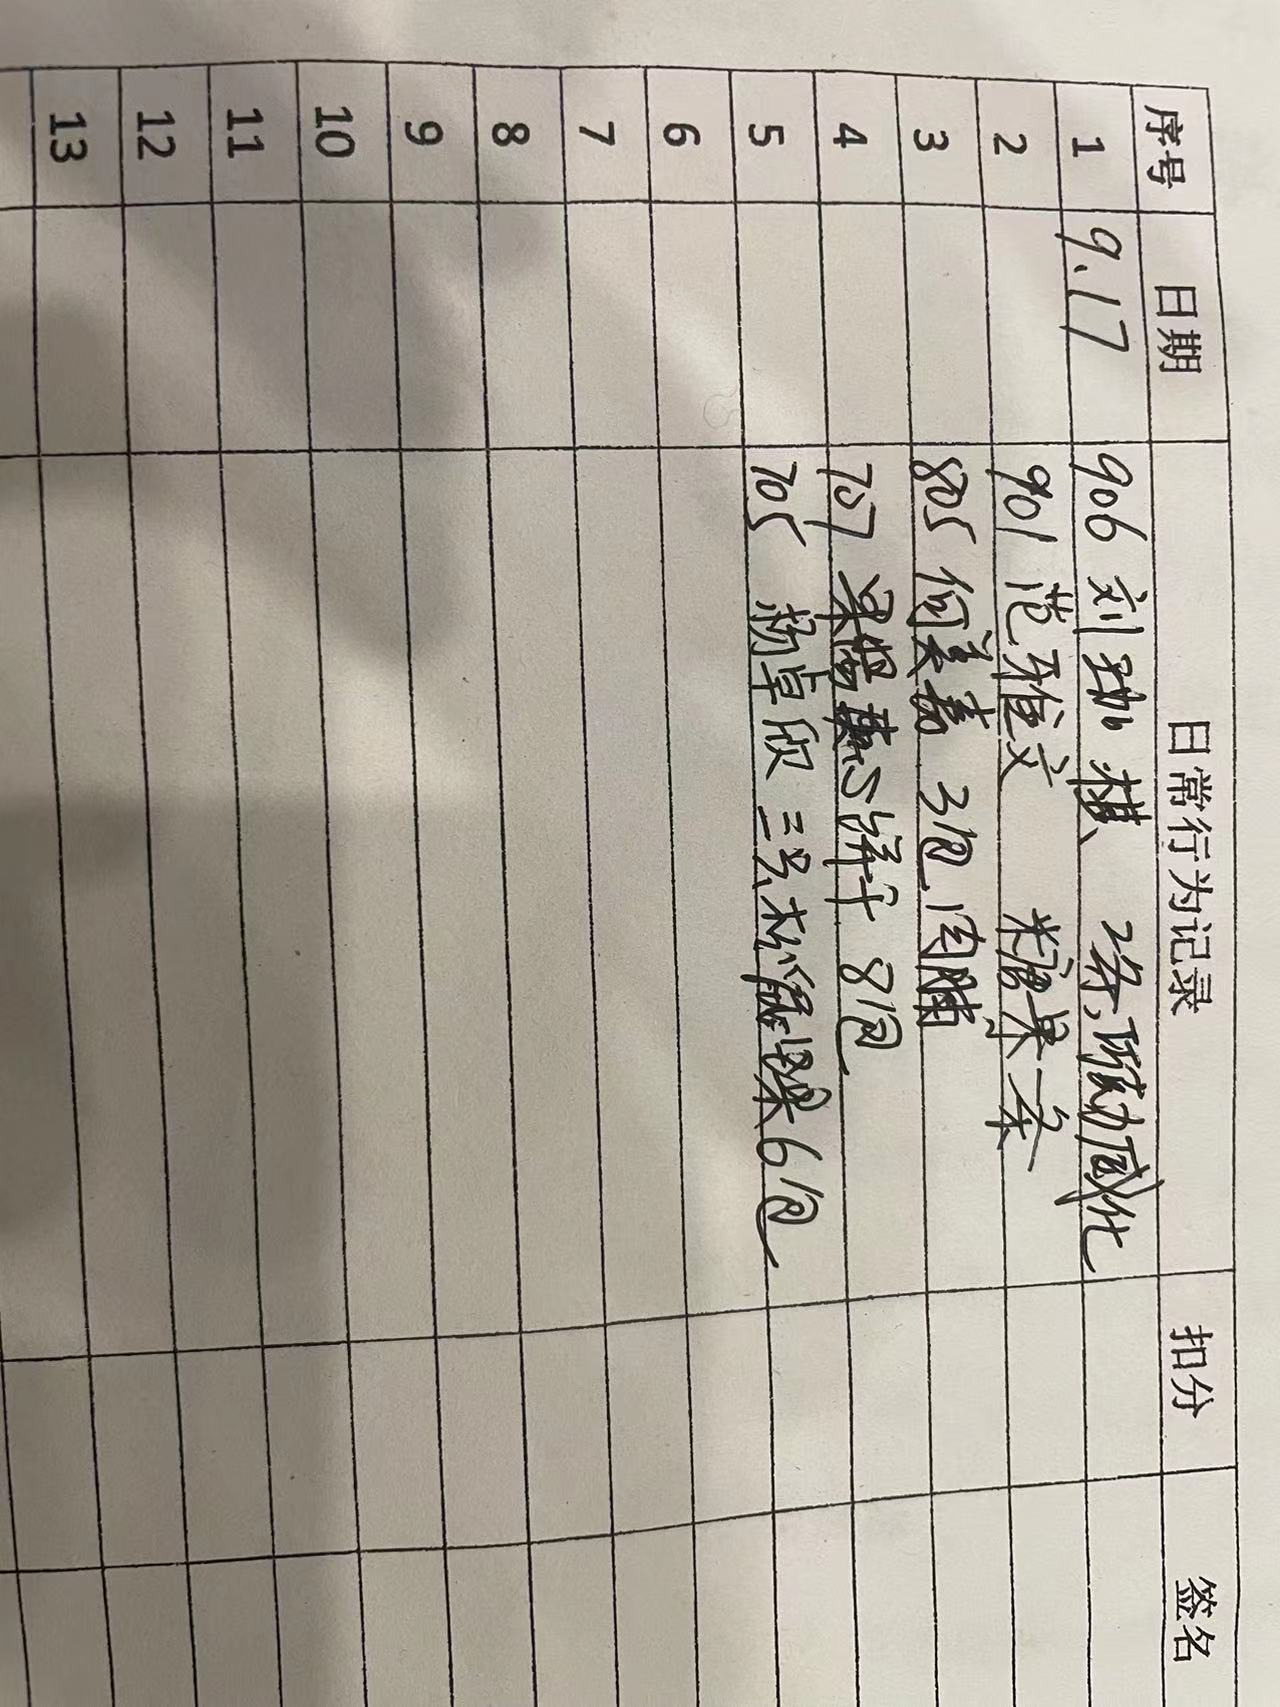 序号 日期 日常行为记录 扣分 签名
1 9.17 906 刘 棋 2条,
2 901 范雅文 糖果一条
3 805 何美嘉 3包肉脯
4 707 梁 心 饼干 8包
5 705 杨卓欣 三只松鼠 6包
6
7
8
9
10
11
12
13